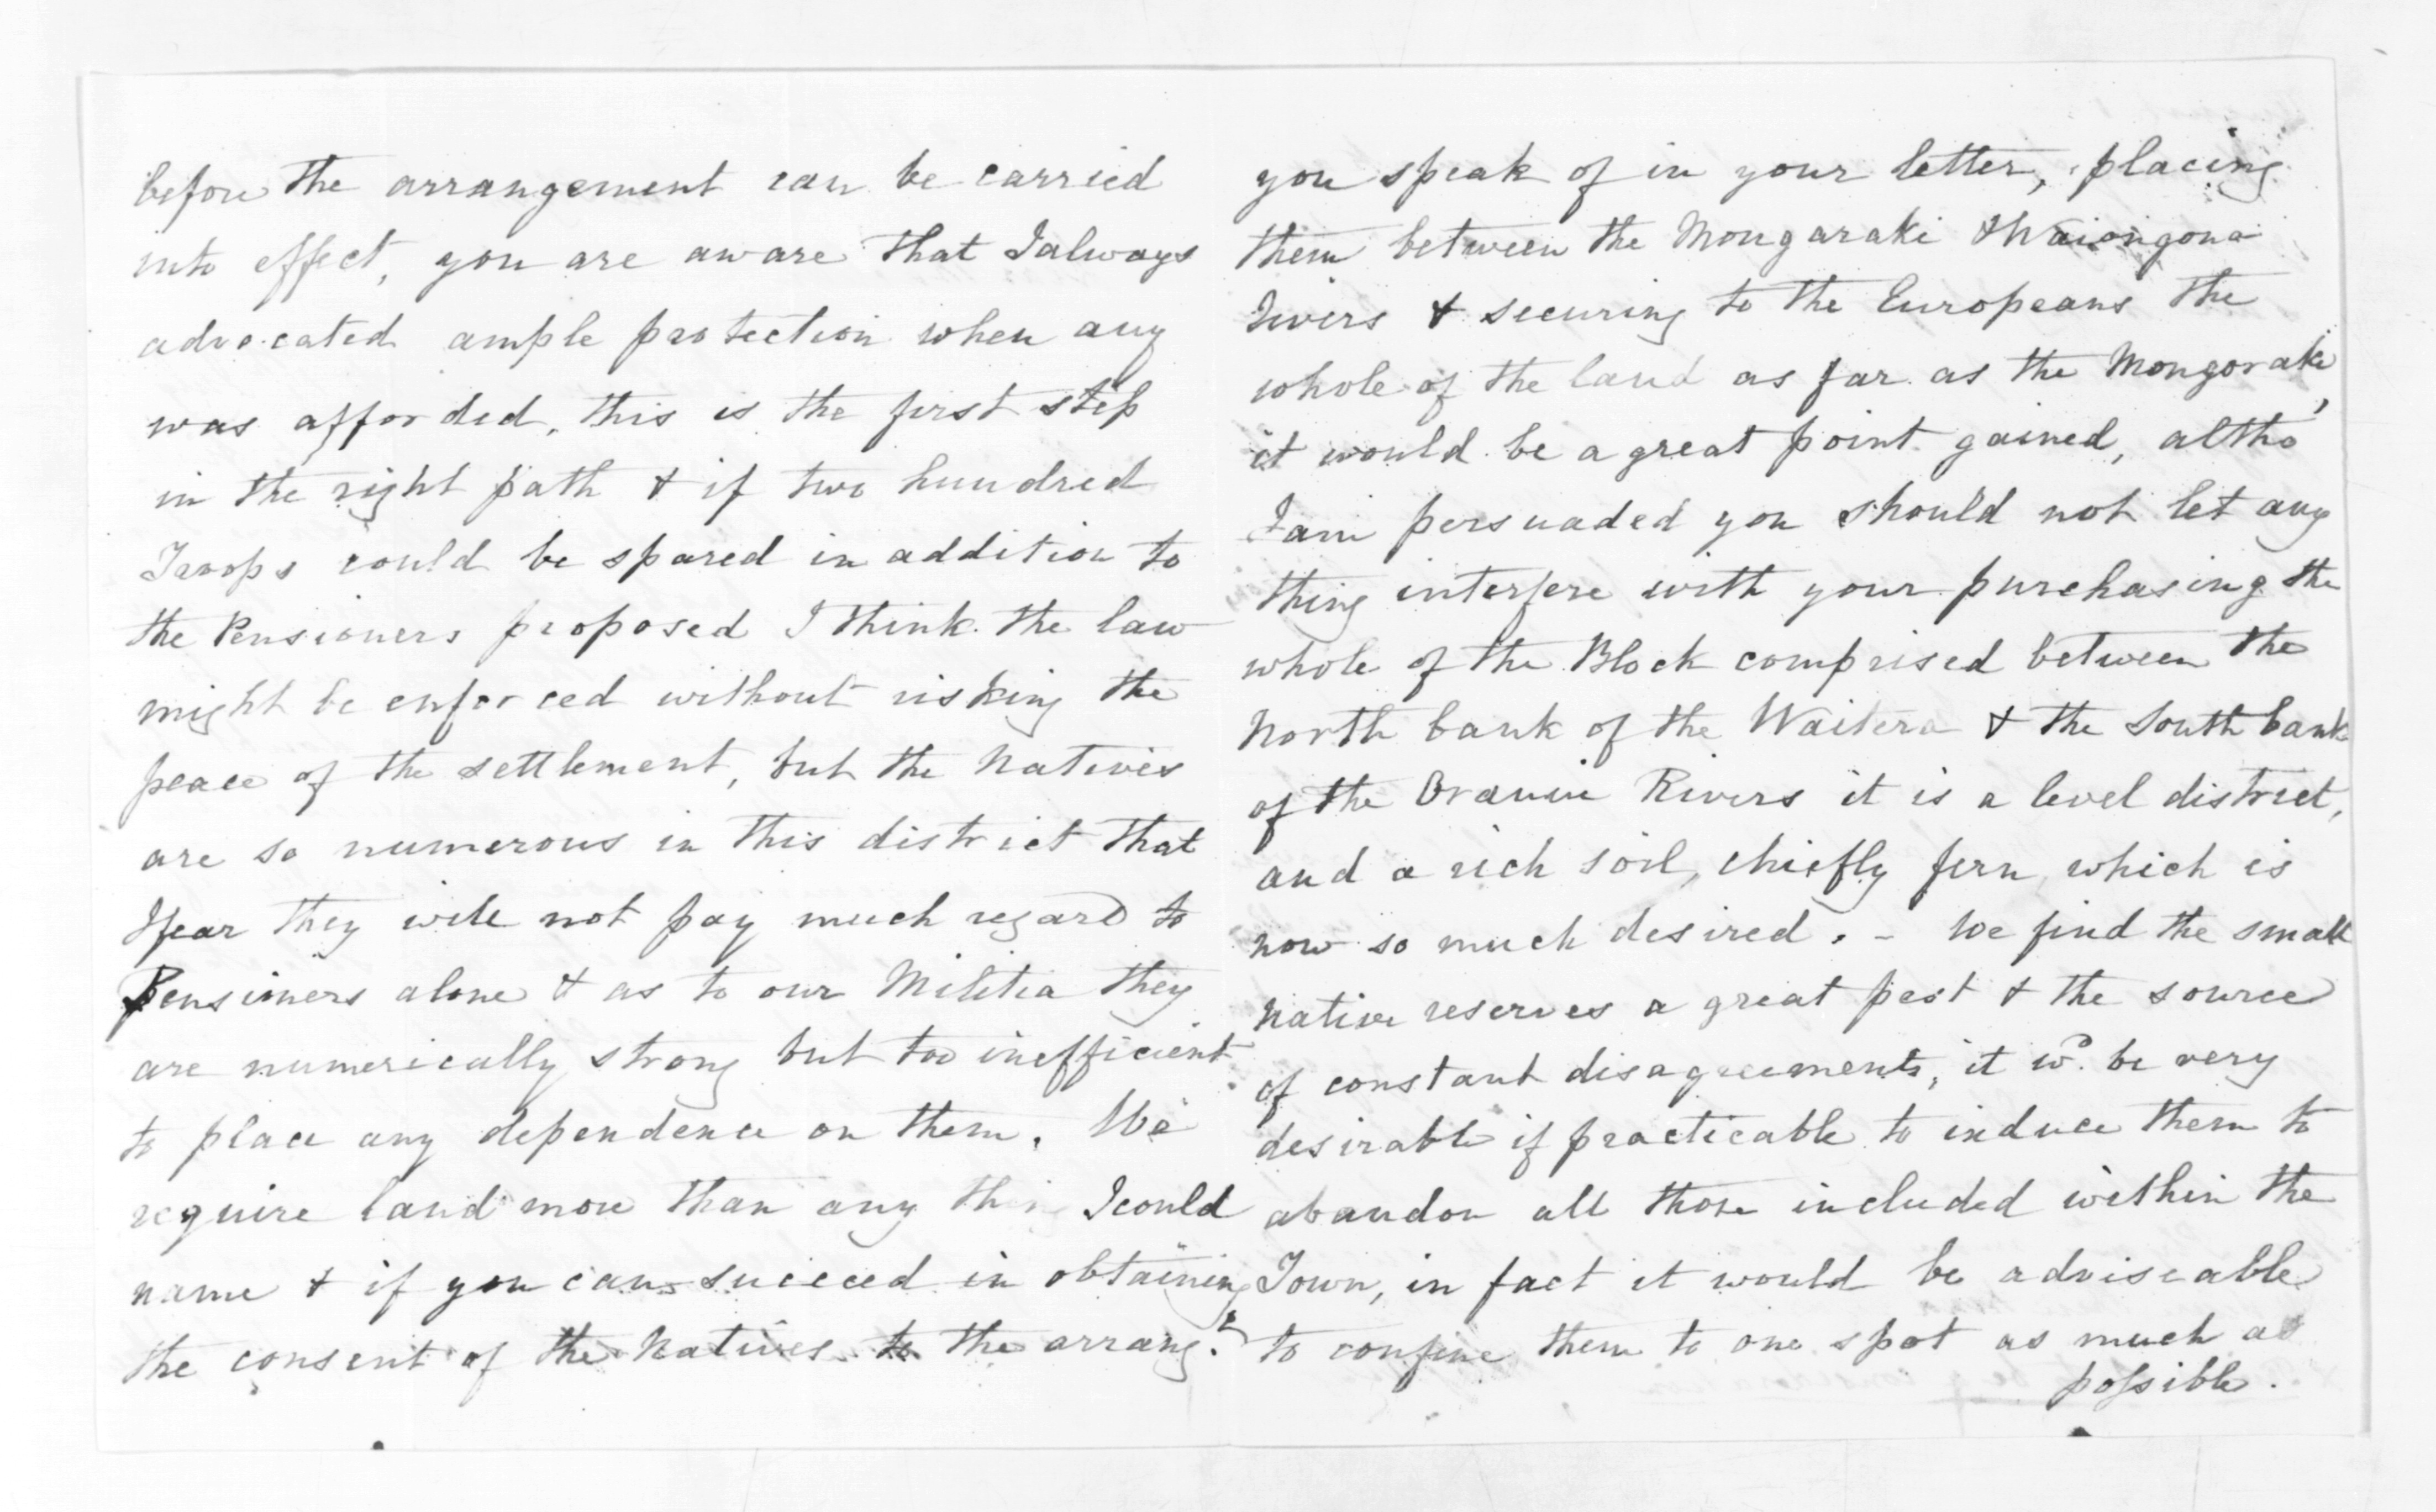 before the arrangement can be carried
into effect, you are aware that I always
advocated ample protection when any
was afforded, this is the first step
in the right path & if two hundred
Troops could be spared in addition to
the Pensioners proposed I think the law
might be enforced without risking the
peace of the settlement, but the Natives
are so numerous in this district that
I fear they will not pay much regard to
Pensioners alone & as to our Militia they
are numerically strong but too inefficient
to place any dependence on them. We
require land more than any thing I could
name & if you can succeed in obtaining
the consent of the Natives to the arrangt.
you speak of in your letter, placing
them between the Mongaraki & Waiongona
Rivers & securing to the Europeans the
whole of the land as far as the Mongorake,
it would be a great point gained, altho'
I am persuaded you should not let any
thing interfere with your purchasing the
whole of the Block comprised between the
North bank of the Waitera & the South bank
of the Rivers it is a level district,
and a rich soil, chiefly fern, which is
now so much desired. - We find the small
native reserves a great pest & the source
of constant disagreements, it wd. be very
desirable if practicable to induce them to
abandon all those included within the
Town, in fact it would be adviseable
to confine them to one spot as much as
possible.